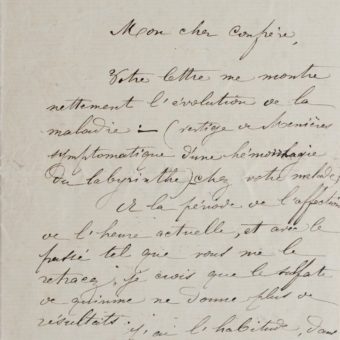 Mon cher confrère,
Votre lettre me montre
nettement l'évolution de la
maladie :- (vertige de Menière
symptomatique d'une hémorrhagie
du labyrinthe) chez votre malade.
A la période de l'affection
de l'heure actuelle, et avec le
passé tel que vous me le
retracez, je crois que le sulfate
de quinine ne donne plus de
résultats.
j'ai l'habitude, dans